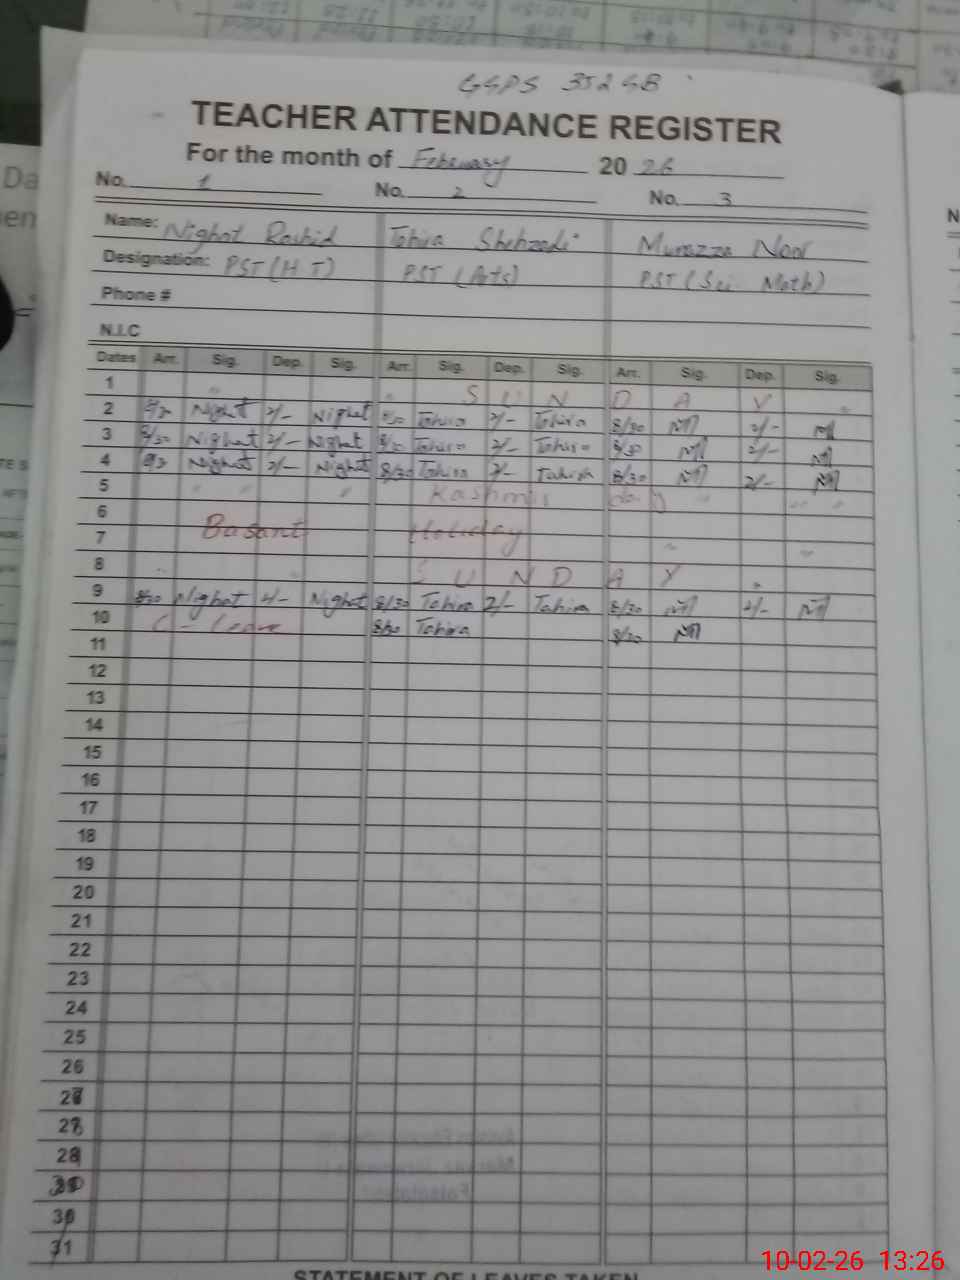 GGPS 352 GB
TEACHER ATTENDANCE REGISTER
For the month of February 20 26
No. 1 No. 2 No. 3
Name: Nighat Rashid Tahira Shehzadi Munazza Noor
Designation: PST (H T) PST (Arts) PST (Sci Math)
Phone #
N.I.C
Dates Arr. Sig. Dep. Sig. Arr. Sig. Dep. Sig. Arr. Sig. Dep. Sig.
1 S U N D A Y
2 Nighat 2/- Nighat 8/30 Tahira 2/- Tahira 8/30 2/-
3 8/30 Nighat 2/- Nighat 8/30 Tahira 2/- Tahira 8/30 2/-
4 Nighat 2/- Nighat 8/30 Tahira 2/- Tahira 8/30 2/-
5 Kashmir Day
6
7 Basant Holiday
8 S U N D A Y
9 8/30 Nighat 2/- Nighat 8/30 Tahira 2/- Tahira 8/30 2/-
10 C-Leave 8/30 Tahira 8/30
11
12
13
14
15
16
17
18
19
20
21
22
23
24
25
26
27
28
31
STATEMENT OF LEAVES TAKEN
10-02-26 13:26